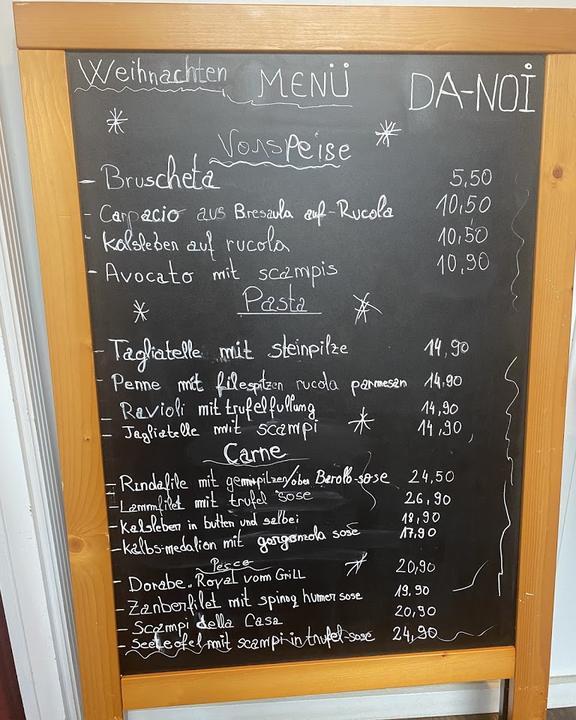 Weihnachten MENÜ DA-NOI
Vorspeise
- Bruscheta 5,50
- Carpacio aus Bresaula auf-Rucola 10,50
- Kalsleben auf rucola 10,50
- Avocato mit scampis 10,90
Pasta
- Tagliatelle mit steinpilze 14,90
- Penne mit filespitzen rucola parmesan 14,90
- Ravioli mit trufelfullung 14,90
- Tagliatelle mit scampi 14,90
Carne
- Rindafile mit Barollo-sose 24,50
- Lammfilet mit trufel sose 26,90
- Kalsleben in butten und salbei 18,90
- Kalbs-medalion mit gorgonzola sose 17,90
Pesce
- Dorabe-Royal vom Grill 20,90
- Zanberfilet mit spinag humer sose 19,90
- Scampi della Casa 20,90
- Seeteofel mit scampi in trufel-sose 24,90